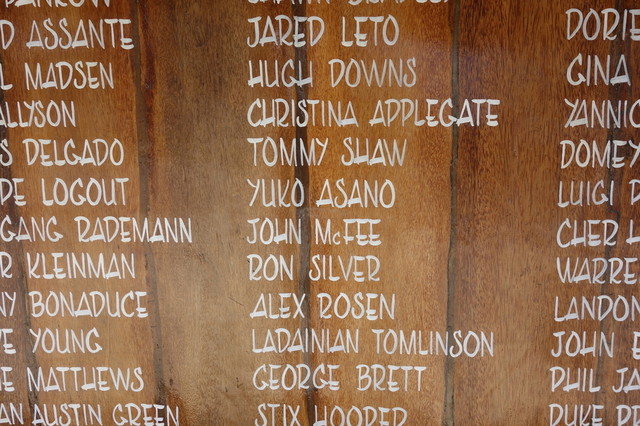 D ASSANTE
L MADSEN
ALLYSON
S DELGADO
PE LOGOUT
GANG RADEMANN
R KLEINMAN
NY BONADUCE
YOUNG
MATTHEWS
AN AUSTIN GREEN
JARED LETO
HUGH DOWNS
CHRISTINA APPLEGATE
TOMMY SHAW
YUKO ASANO
JOHN McFEE
RON SILVER
ALEX ROSEN
LADAINIAN TOMLINSON
GEORGE BRETT
STIX HOOPER
DORIE
GINA
YANNIC
DOMEY
LUIGI
CHER
WARRE
LANDON
JOHN E
PHIL JA
DUKE